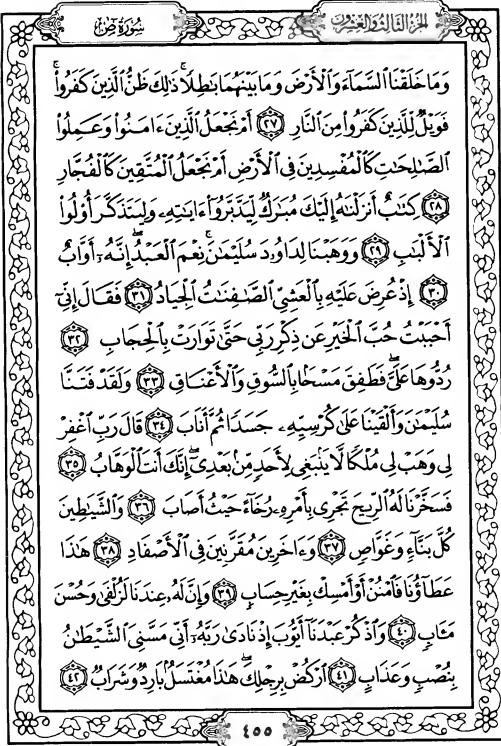 سُورَةُ صٓ
الجُزْءُ الثَّالِثُ وَالعِشْرُون
وَمَا خَلَقْنَا ٱلسَّمَآءَ وَٱلْأَرْضَ وَمَا بَيْنَهُمَا بَٰطِلًا ۚ ذَٰلِكَ ظَنُّ ٱلَّذِينَ كَفَرُوا۟ ۚ
فَوَيْلٌ لِّلَّذِينَ كَفَرُوا۟ مِنَ ٱلنَّارِ ٢٧ أَمْ نَجْعَلُ ٱلَّذِينَ ءَامَنُوا۟ وَعَمِلُوا۟
ٱلصَّٰلِحَٰتِ كَٱلْمُفْسِدِينَ فِى ٱلْأَرْضِ أَمْ نَجْعَلُ ٱلْمُتَّقِينَ كَٱلْفُجَّارِ
٢٨ كِتَٰبٌ أَنزَلْنَٰهُ إِلَيْكَ مُبَٰرَكٌ لِّيَدَّبَّرُوٓا۟ ءَايَٰتِهِۦ وَلِيَتَذَكَّرَ أُو۟لُوا۟
ٱلْأَلْبَٰبِ ٢٩ وَوَهَبْنَا لِدَاوُۥدَ سُلَيْمَٰنَ ۚ نِعْمَ ٱلْعَبْدُ ۖ إِنَّهُۥٓ أَوَّابٌ
٣٠ إِذْ عُرِضَ عَلَيْهِ بِٱلْعَشِىِّ ٱلصَّٰفِنَٰتُ ٱلْجِيَادُ ٣١ فَقَالَ إِنِّىٓ
أَحْبَبْتُ حُبَّ ٱلْخَيْرِ عَن ذِكْرِ رَبِّى حَتَّىٰ تَوَارَتْ بِٱلْحِجَابِ ٣٢
رُدُّوهَا عَلَىَّ ۖ فَطَفِقَ مَسْحًۢا بِٱلسُّوقِ وَٱلْأَعْنَاقِ ٣٣ وَلَقَدْ فَتَنَّا
سُلَيْمَٰنَ وَأَلْقَيْنَا عَلَىٰ كُرْسِيِّهِۦ جَسَدًا ثُمَّ أَنَابَ ٣٤ قَالَ رَبِّ ٱغْفِرْ
لِى وَهَبْ لِى مُلْكًا لَّا يَنۢبَغِى لِأَحَدٍ مِّنۢ بَعْدِىٓ ۖ إِنَّكَ أَنتَ ٱلْوَهَّابُ ٣٥
فَسَخَّرْنَا لَهُ ٱلرِّيحَ تَجْرِى بِأَمْرِهِۦ رُخَآءً حَيْثُ أَصَابَ ٣٦ وَٱلشَّيَٰطِينَ
كُلَّ بَنَّآءٍ وَغَوَّاصٍ ٣٧ وَءَاخَرِينَ مُقَرَّنِينَ فِى ٱلْأَصْفَادِ ٣٨ هَٰذَا
عَطَآؤُنَا فَٱمْنُنْ أَوْ أَمْسِكْ بِغَيْرِ حِسَابٍ ٣٩ وَإِنَّ لَهُۥ عِندَنَا لَزُلْفَىٰ وَحُسْنَ
مَـَٔابٍ ٤٠ وَٱذْكُرْ عَبْدَنَآ أَيُّوبَ إِذْ نَادَىٰ رَبَّهُۥٓ أَنِّى مَسَّنِىَ ٱلشَّيْطَٰنُ
بِنُصْبٍ وَعَذَابٍ ٤١ ٱرْكُضْ بِرِجْلِكَ ۖ هَٰذَا مُغْتَسَلٌۢ بَارِدٌ وَشَرَابٌ ٤٢
٤٥٥